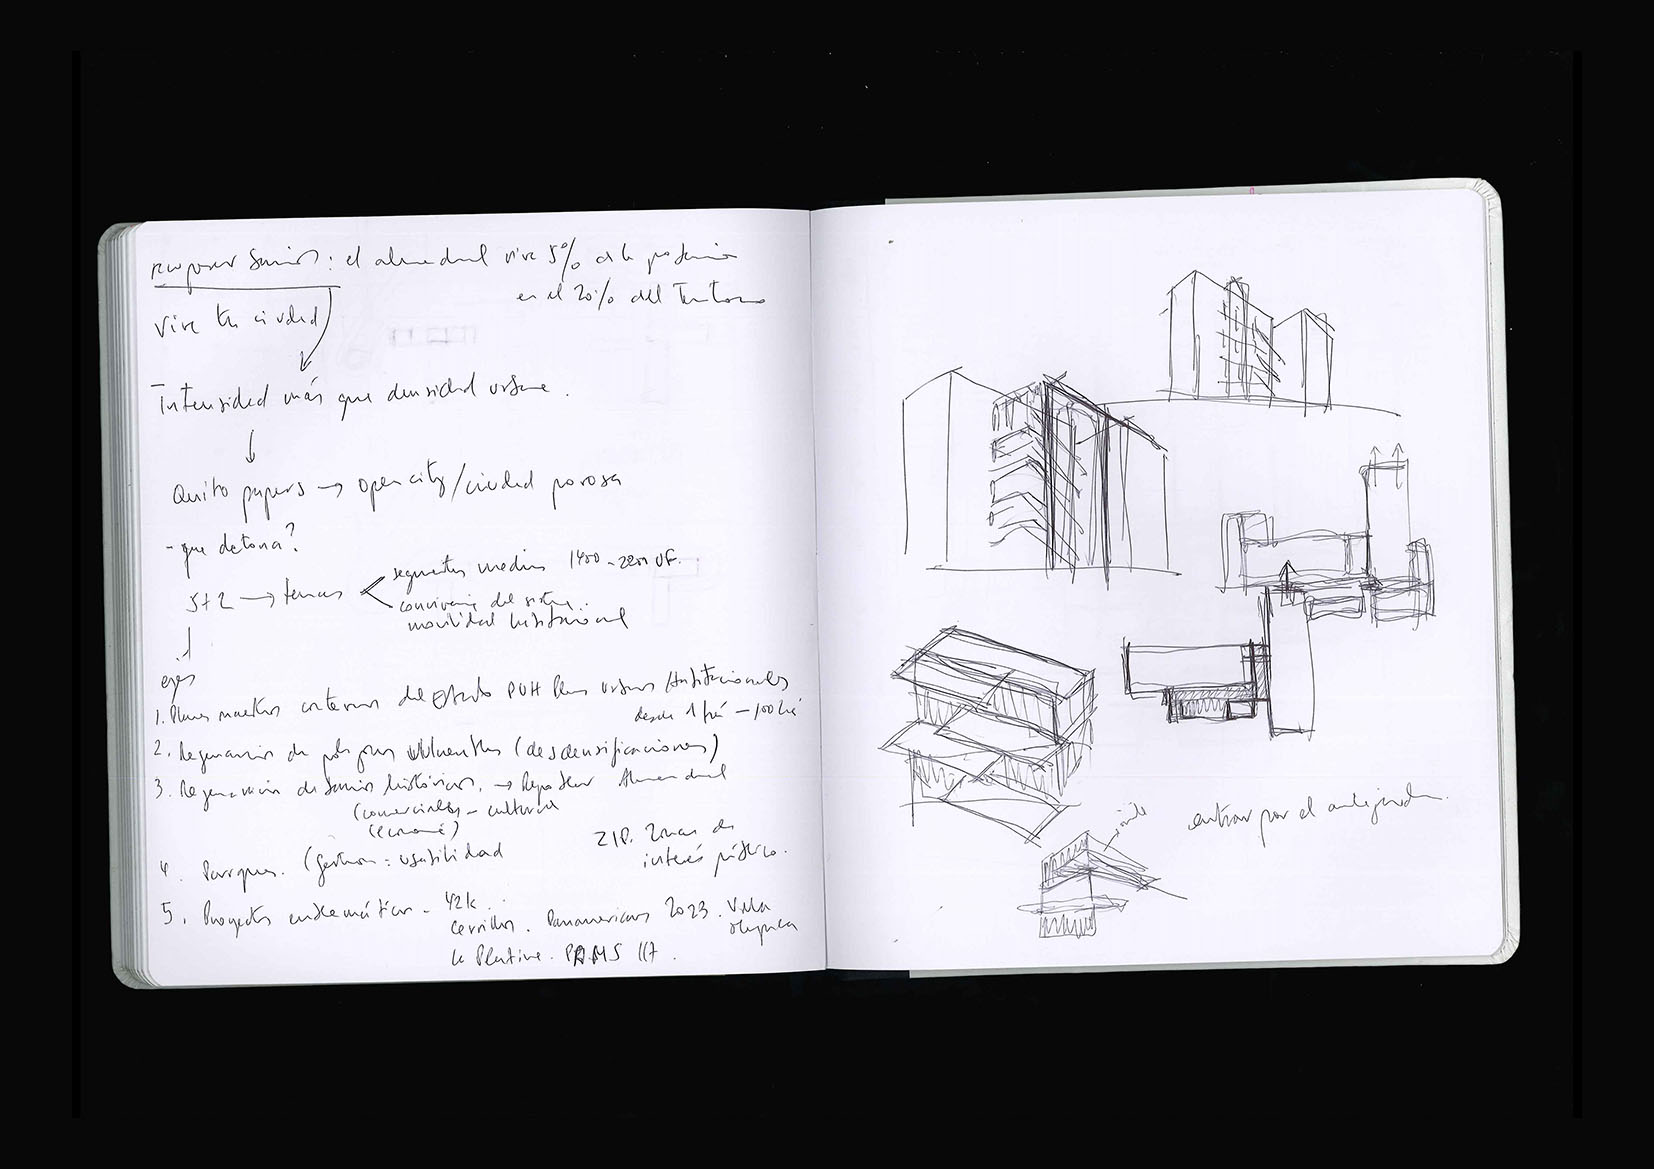 barrios: el almendral vive 5% de la
en el 20% del territorio
Vive tu ciudad
- Intensidad más que densidad urbana.
Quito papers → open city/ciudad porosa
- que detona?
5+2 → temas
segmentos medios 1400 - 2200 UF.
convivencia del sistema
movilidad habitacional
ejes
1. Planes maestros del PUH Planes urbanos Habitacionales
desde 1 há - 100 há
2. Regeneración de (desdensificaciones)
3. Regeneración de barrios históricos, → Almendral
(comerciales - cultural
4. Parques. (gestion = usabilidad
ZIP. Zonas de
interés público.
5. Proyectos emblemáticos - 42k
Cerrillos. Panamericanos 2023. Villa
olympica
La Platina. PAMS 117.
entrar por el antejardin